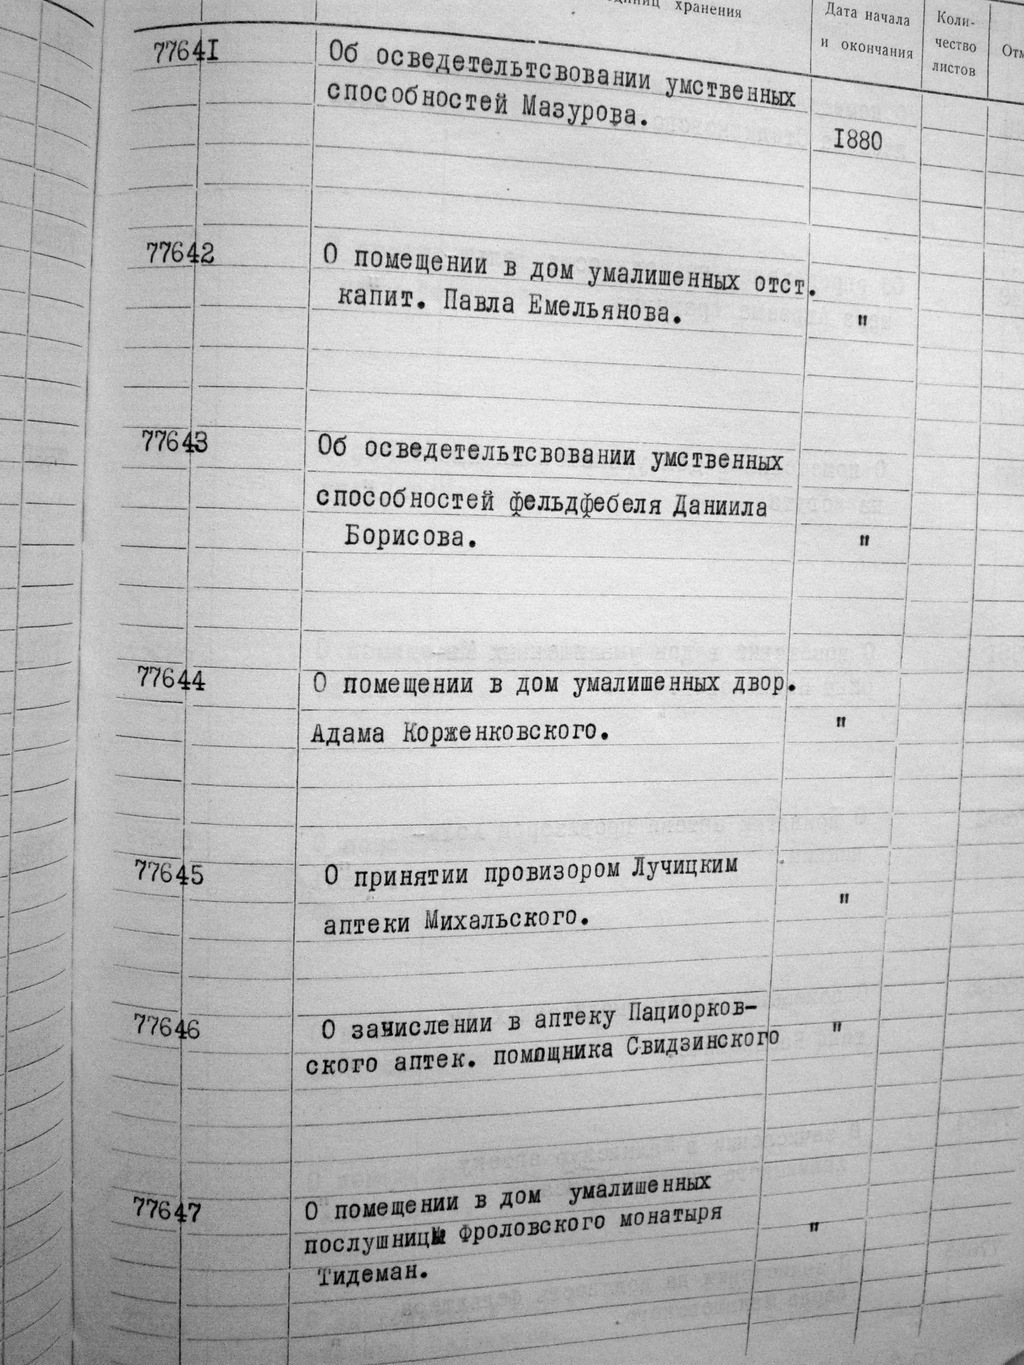 единиц хранения
Дата начала
и окончания
Коли-
чество
листов
77641
Об осведетельтсвовании умственных
способностей Мазурова.
1880
77642
О помещении в дом умалишенных отст.
капит. Павла Емельянова.
"
77643
Об осведетельтсвовании умственных
способностей фельдфебеля Даниила
Борисова.
"
77644
О помещении в дом умалишенных двор.
Адама Корженковского.
"
77645
О принятии провизором Лучицким
аптеки Михальского.
"
77646
О зачислении в аптеку Пациорков-
ского аптек. помощника Свидзинского
"
77647
О помещении в дом умалишенных
послушницы Фроловского монатыря
Тидеман.
"